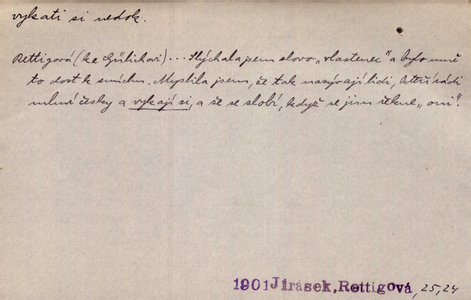 vykati si nedok.
Rettigová (ke Gülichovi)... Slýchala jsem slovo „vlastenec" a bylo mně
to dost k smíchu. Myslila jsem, že tak nazývají lidi, kteří rádi
mluví česky a vykají si, a že se zlobí, když se jim řekne „oni".
1901 Jirásek, Rettigová, 25,24